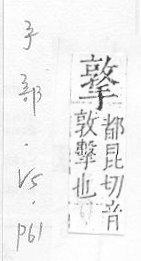 手部·V5·p61
撉
都昆切音
敦擊也